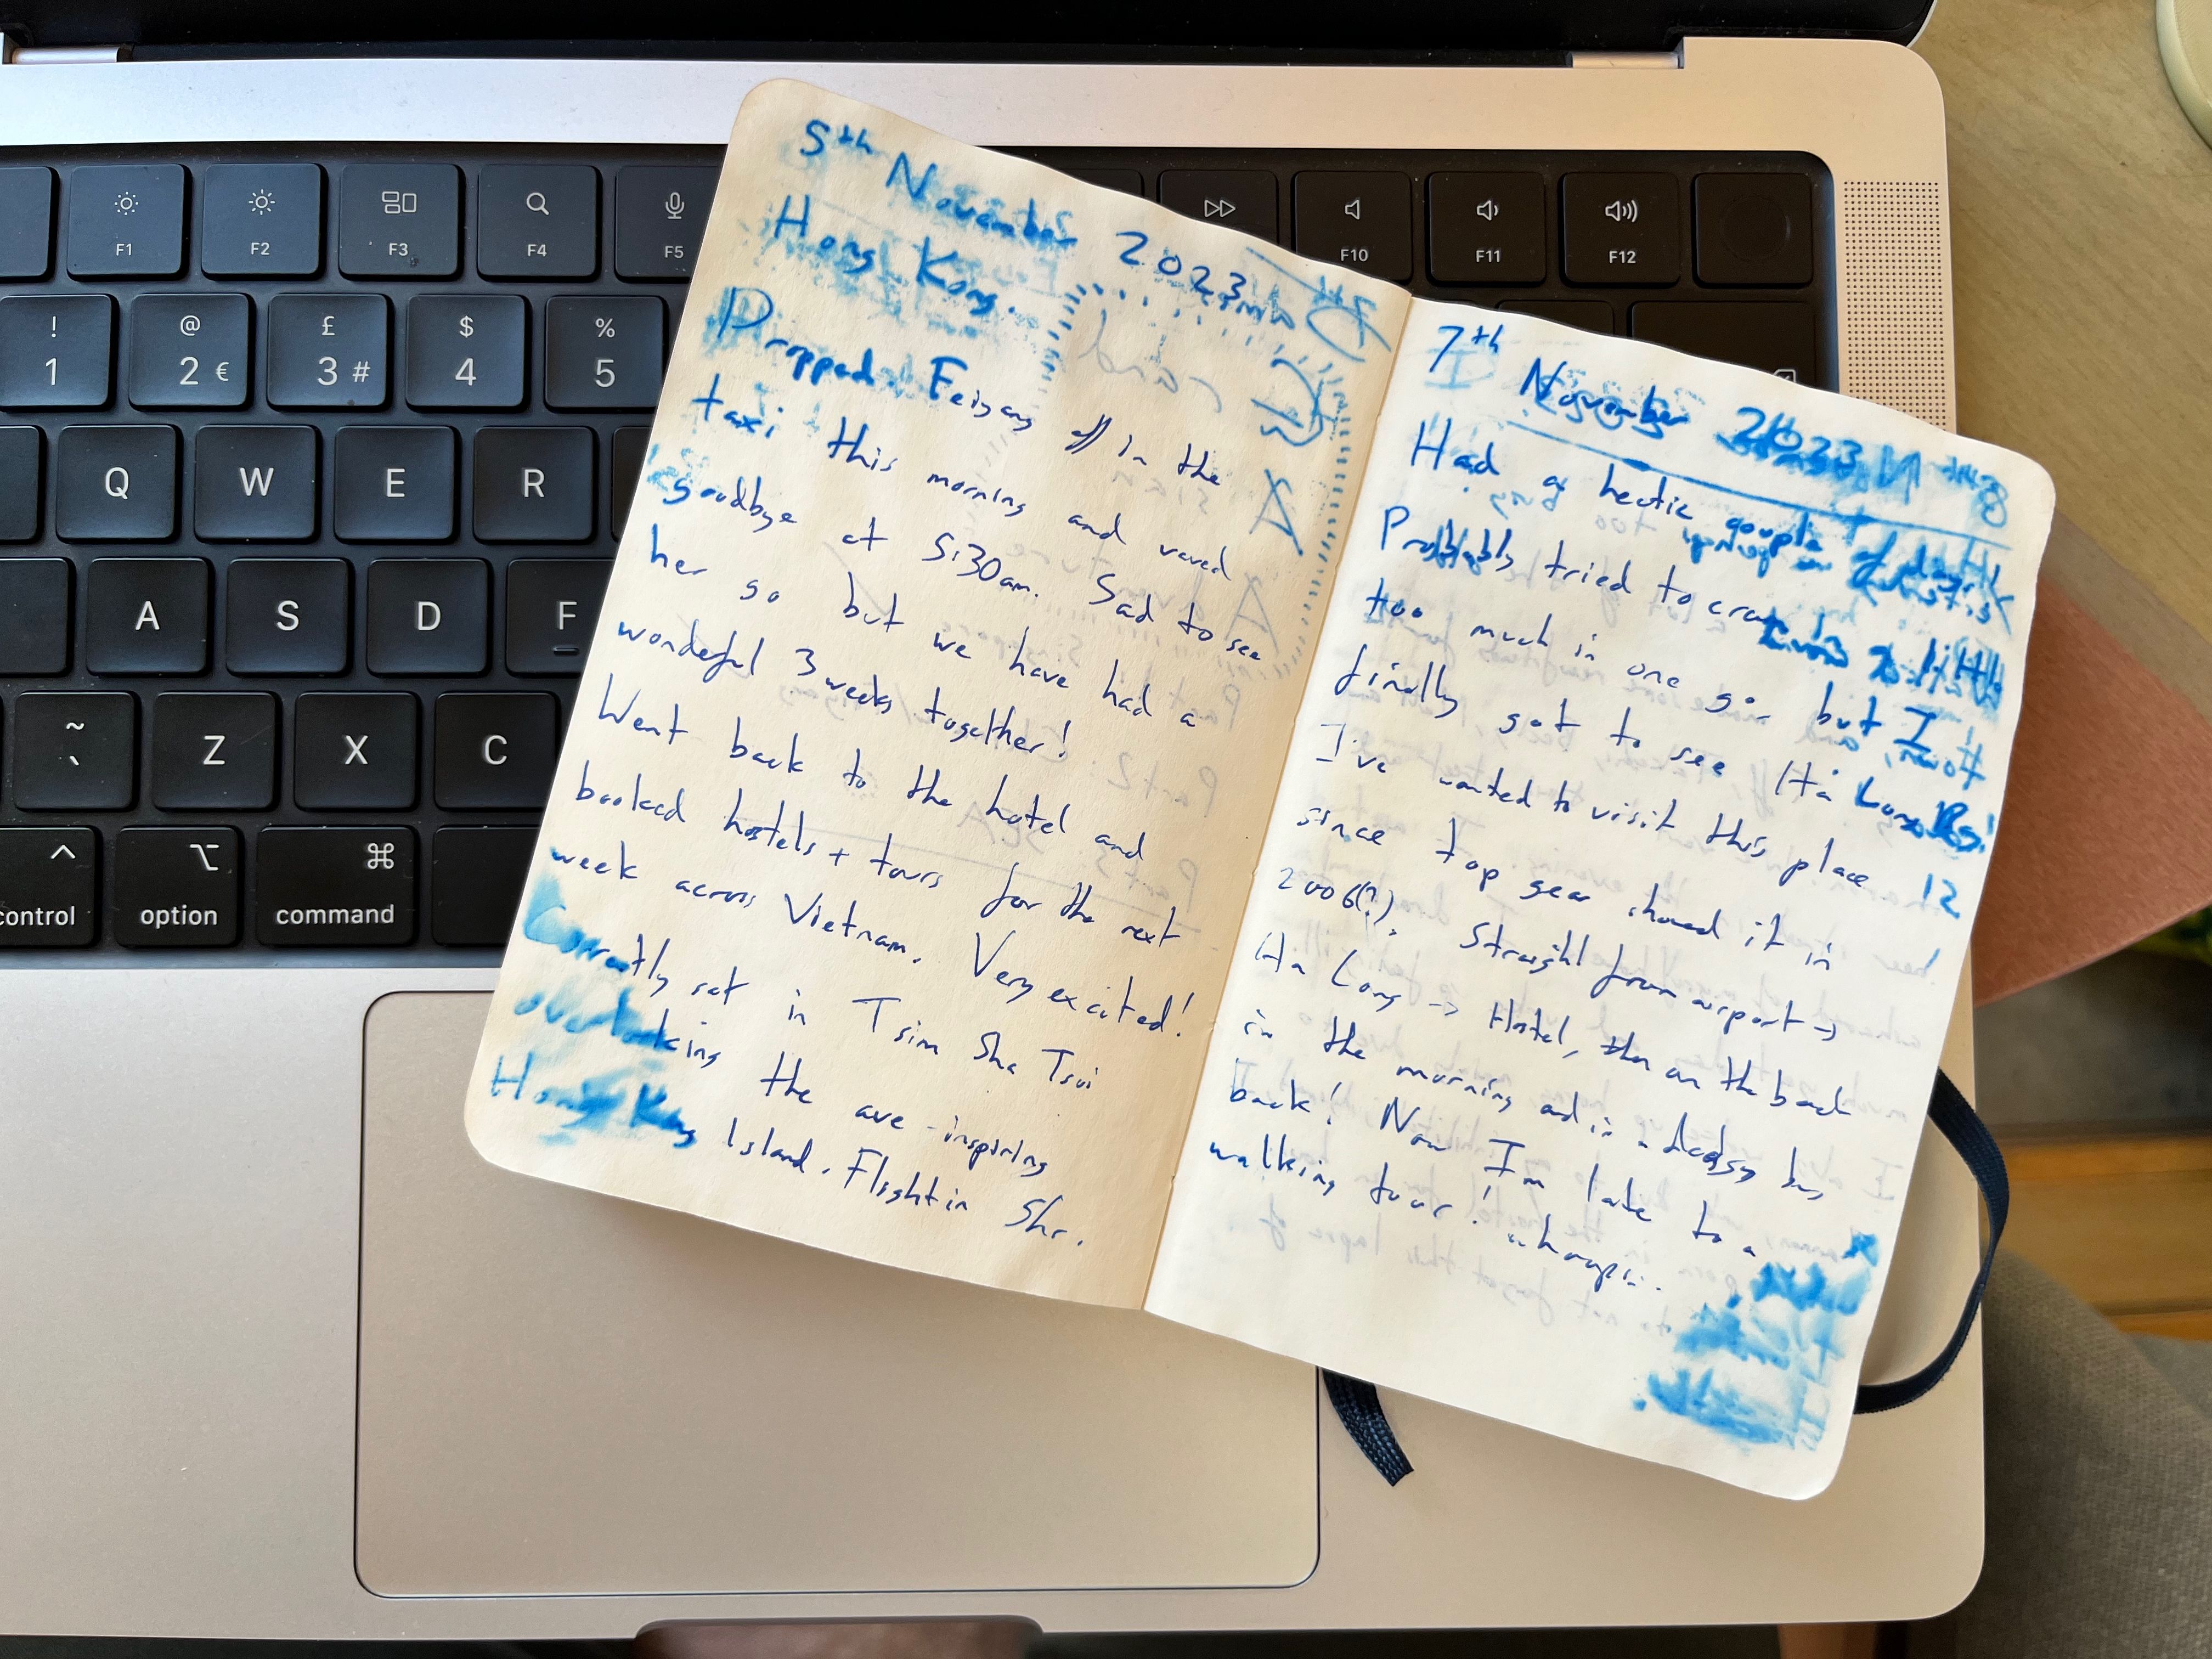 F1
F2
F3
F4
F5
F10
F11
F12
!
1
@
2 €
£
3 #
$
4
%
5
Q
W
E
R
A
S
D
F
~
`
Z
X
C
control
option
command
5th November 2023
Hong Kong.
Dropped Feiyang off in the
taxi this morning and waved
goodbye at 5:30am. Sad to see
her go but we have had a
wonderful 3 weeks together!
Went back to the hotel and
booked hostels + tours for the next
week across Vietnam. Very excited!
Currently sat in Tsim Sha Tsui
overlooking the awe-inspiring
Hong Kong Island. Flight in 5hr.
7th November 2023
Had a hectic couple of days.
Probably tried to cram in a little
too much in one go, but I
finally got to see Ha Long Bay!
I've wanted to visit this place
since top gear showed it in
2006(?). Straight from airport →
Ha Long → Hostel, then on the boat
in the morning and in a bus
back! Now I'm late to a
walking tour! whoops...